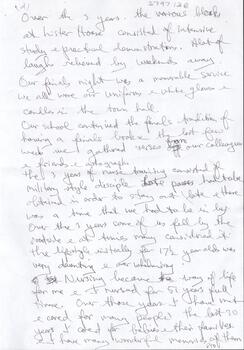 (4)
3797126
Over the 3 years. the various blocks
at Lister House consisted of intensive
study & practical demonstrations. Alot of
laughs relieved by weekends away.
Our finals night was a memorable service
we all wore our uniforms & white gloves &
candles in the town hall.
Our school continued the finals tradition of
having a finals book & the last few
weeks we gathered verses from our colleagues
& friends & photographs.
The 3 years of nurse training consisted of
military style disciple late passes had to be
obtained in order to stay out late & there
was a time that we had to be in bed
Over the 3 years some of us fell by the
roadside & at times many considered it.
The lifestyle initially to 17½ year olds was
very daunting &
Nursing became way of life
for me & I nursed for 51 years full
time. Over those years I have met
& cared for many people the last 20
years I cared for & their families
& I have many wonderful memories of them